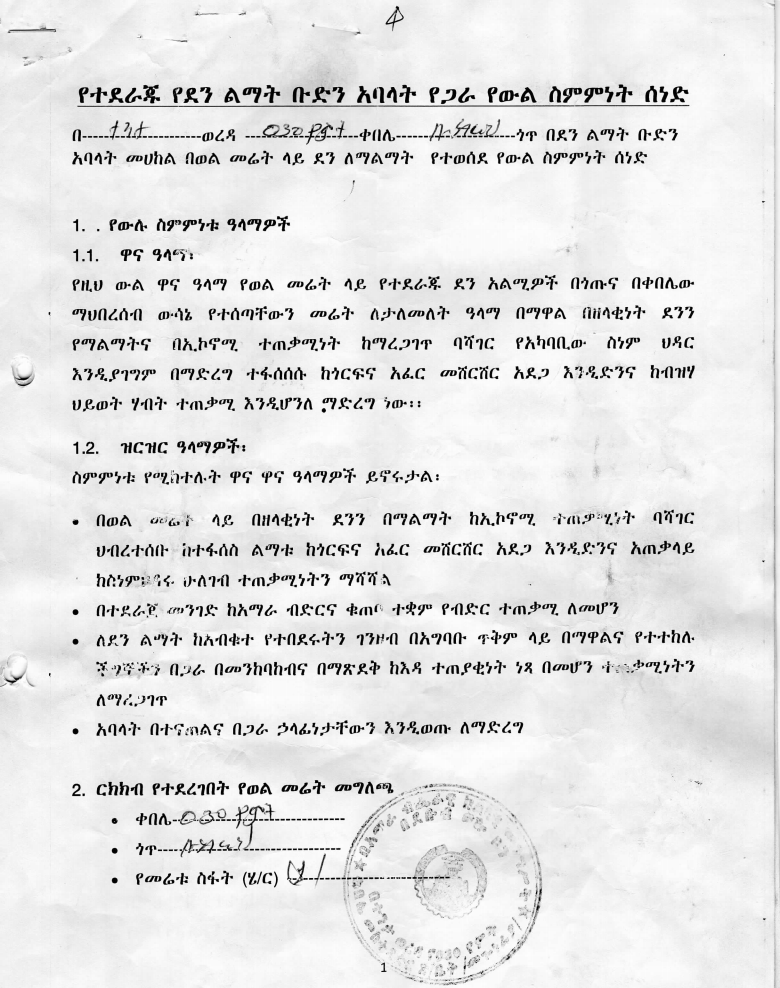 የተደራጁ የደን ልማት ቡድን አባላት የጋራ የውል ስምምነት ሰነድ
በ--------------------ወረዳ --------------------ቀበሌ--------------------ጎጥ በደን ልማት ቡድን
አባላት መሀከል በወል መሬት ላይ ደን ለማልማት የተወሰደ የውል ስምምነት ሰነድ
1. . የውሉ ስምምነቱ ዓላማዎች
1.1. ዋና ዓላማ፡
የዚህ ውል ዋና ዓላማ የወል መሬት ላይ የተደራጁ ደን አልሚዎች በጎጡና በቀበሌው
ማህበረሰብ ውሳኔ የተሰጣቸውን መሬት ለታለመለት ዓላማ በማዋል በዘላቂነት ደንን
የማልማትና በኢኮኖሚ ተጠቃሚነት ከማረጋገጥ ባሻገር የአካባቢው ስነም ህዳር
እንዲያገግም በማድረግ ተፋሰሰሱ ከጎርፍና አፈር መሸርሸር አደጋ እንዲድንና ከብዝሃ
ህይወት ሃብት ተጠቃሚ እንዲሆንለ ማድረግ ነው፡፡
1.2. ዝርዝር ዓላማዎች፡
ስምምነቱ የሚከተሉት ዋና ዋና ዓላማዎች ይኖሩታል፡
• በወል መሬት ላይ በዘላቂነት ደንን በማልማት ከኢኮኖሚ ተጠቃሚነት ባሻገር
ህብረተሰቡ ከተፋሰስ ልማቱ ከጎርፍና አፈር መሸርሸር አደጋ እንዲድንና አጠቃላይ
ሁለገብ ተጠቃሚነትን ማሻሻል
• በተደራጀ መንገድ ከአማራ ብድርና ቁጠባ ተቋም የብድር ተጠቃሚ ለመሆን
• ለደን ልማት ከአብቁተ የተበደሩትን ገንዘብ በአግባቡ ጥቅም ላይ በማዋልና የተተከሉ
ችግኞችን በጋራ በመንከባከብና በማጽደቅ ከእዳ ተጠያቂነት ነጻ በመሆን ተጠቃሚነትን
ለማረጋገጥ
• አባላት በተናጠልና በጋራ ኃላፊነታቸውን እንዲወጡ ለማድረግ
2. ርክክብ የተደረገበት የወል መሬት መግለጫ
• ቀበሌ------------------------------
• ጎጥ------------------------------
• የመሬቱ ስፋት (ሄ/ር) ----------------------------
1